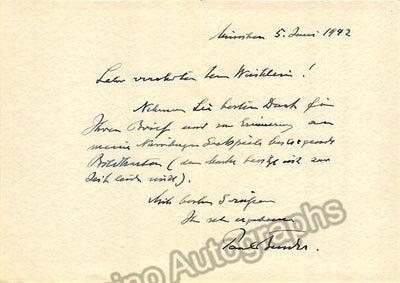 München 5. Juni 1942
Sehr verehrter Herr
Nehmen Sie besten Dank für
Ihren Brief und zur Erinnerung an
meine Nürnberger Gastspiele
zur
Zeit leider nicht).
Mit besten Grüßen
Ihr sehr ergebener
Paul Bender.
ino Autographs